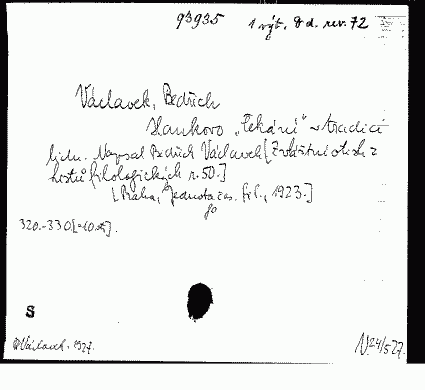 93935 1 výt. d. rev. 72
Václavek, Bedřich
Hankovo „Lkání" v tradici
lidu. Napsal Bedřich Václavek [Zvláštní otisk z
listů filologických r. 50.]
[Praha, Jednota čes. fil., 1923.]
8°
320.-330 [=10 s.].
S
Václavek. 1927.